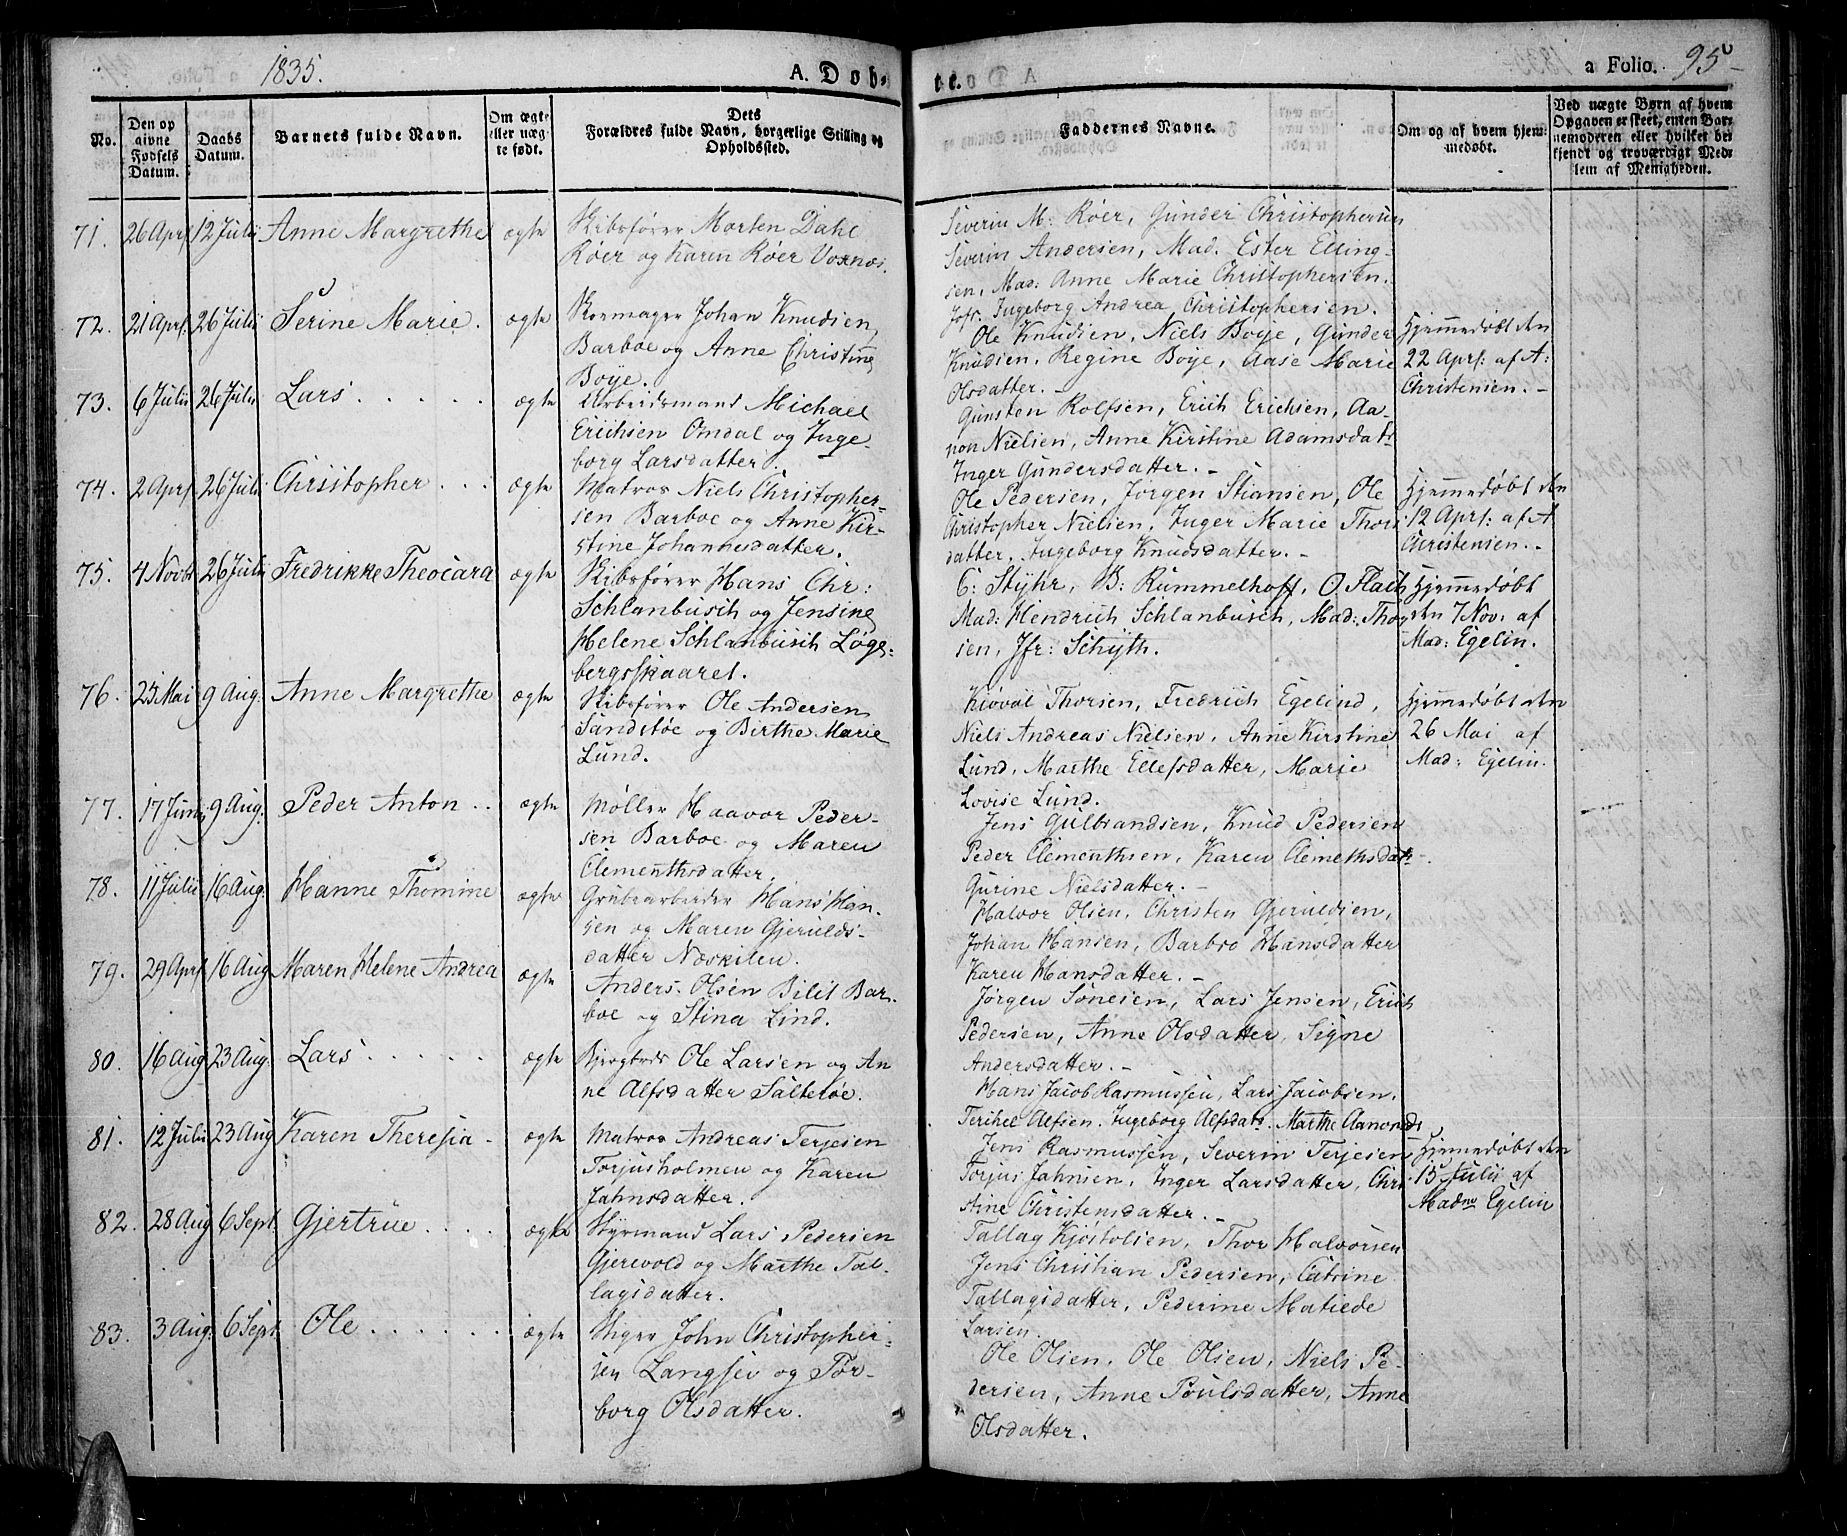 1835.
A. Dob-
te.
a Folio. 95
No.
Den op
givne
Fødsels
Datum.
Daabs
Datum.
Barnets fulde Navn.
Om ægte
eller uæg
te født.
Dets
Forældres fulde Navn, borgerlige Stilling og
Opholdssted.
Faddernes Navne.
Om og af hvem hjem-
medøbt.
Ved uægte Børn af hvem
Opgaven er skeet, enten Bar-
nemoderen eller hvilket be-
kjendt og troværdigt Med-
lem af Menigheden.
71. 26 Apr. 12 Julii Anne Margrethe ægte
Skibsfører Morten Dahl
Røer og Karen Røer Voxnæs.
Severin M: Røer, Gunder Christophersen
Severin Andersen, Mad. Ester Elling-
sen, Mad: Anne Marie Christophersen.
Jofr. Ingeborg Andrea Christophersen.
72. 21 Apr. 26 Julii Serine Marie. ægte
Skomager Johan Knudsen
Barboe og Anne Christine
Boye.
Ole Knudsen, Niels Boye, Gunder
Knudsen, Regine Boye, Aase Marie
Olsdatter. -
Hjemmedøbt den
22 Apr: af A:
Christensen. -
73. 6 Julii 26 Julii Lars . . . . . ægte
Arbeidsmand Michael
Erichsen Omdal og Inge-
borg Larsdatter.
Gunsten Rolfsen, Erich Erichsen, Aa-
non Nielsen, Anne Kirstine Adamsdatr
Inger Gundersdatter. -
74. 2 Apr. 26 Julii Christopher . . . ægte
Matros Niels Christopher-
sen Barboe og Anne Kir-
stine Johannesdatter.
Ole Pedersen, Jørgen Stiansen, Ole
Christopher Nielsen, Inger Marie Thors
datter, Ingeborg Knudsdatter. -
Hjemmedøbt den
12 Apr: af A
Christensen. -
75. 4 Novbr 26 Julii Fredrikke Theocara ægte
Skibsfører Hans Chr:
Schlanbusch og Jensine
Helene Schlanbusch Løge-
bergsskaaret.
C: Styhr, B: Rummelhoff, O. Flach
Mad: Hendrich Schlanbusch, Mad: Thor
sen, Jfr: Schyth.
Hjemmedøbt
den 7 Nov: af
Mad: Egelin.
76. 25 Mai 9 Aug. Anne Margrethe ægte
Skibsfører Ole Andersen
Sandstøe og Birthe Marie
Lund.
Kiøval Thorsen, Fredrich Egelund,
Niels Andreas Nielsen, Anne Kirstine
Lund, Marthe Ellefsdatter, Marie
Lovise Lund.
Hjemmedøbt den
26 Mai af
Mad: Egelin.
77. 17 Juni 9 Aug. Peder Anton . . ægte
Møller Haavor Peder-
sen Barboe og Maren
Clementhsdatter.
Jens Gulbrandsen, Knud Pedersen
Peder Clementhsen, Karen Clemethsdatr -
Gurine Nielsdatter. -
78. 11 Julii 16 Aug. Hanne Thomine ægte
Grubearbeider Hans Han-
sen og Maren Gjerulds-
datter Næskilen.
Halvor Olsen, Christen Gjeruldsen,
Johan Hansen, Barbro Hansdatter
Karen Hansdatter. -
79. 29 Apr. 16 Aug Maren Helene Andrea ægte
Anders Olsen Bilit Bar-
boe og Stina Lind.
Jørgen Sønesen, Lars Jensen, Erich
Pedersen, Anne Olsdatter, Signe
Andersdatter. -
80. 16 Aug 23 Aug. Lars . . . . . ægte
Bjergbrds Ole Larsen og An
ne Alfsdatter Salterøe.
Hans Jacob Rasmussen, Lars Jacobsen,
Terikel Alfsen, Ingeborg Alfsdatr. Marthe Aanonds
81. 12 Julii 23 Aug Karen Theresia - ægte
Matros Andreas Terjesen
Torjusholmen og Karen
Jahnsdatter.
Jens Rasmussen, Severin Terjesen
Torjus Jahnsen, Inger Larsdatter, Chri
stine Christensdatter. -
Hjemmedøbt den
15 Julii af
Madme Egelin
82. 28 Aug 6 Sept. Gjertrue . . . . ægte
Styrmand Lars Pedersen
Gjervold og Marthe Tal-
lagsdatter.
Tallag Kjøstolsen, Thor Halvorsen
Jens Christian Pedersen, Catrine
Tallagsdatter, Pederine Matilde
Larsen.
83. 3 Aug. 6 Sept. Ole . . . . . ægte
Stiger John Christopher-
sen Langsev og Tor-
borg Olsdatter.
Ole Olsen, Ole Olsen, Niels Pe-
dersen, Anne Poulsdatter, Anne
Olsdatter.